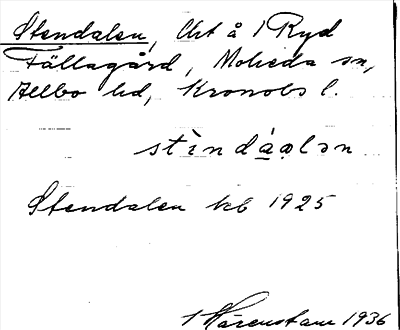 Stendalen, Urt å 1 Ryd
Fällagård, Moheda sn,
Allbo hd, Kronobs l.
stìndá̱a̤lən
Stendalen kb 1925
1 Härenstam 1936